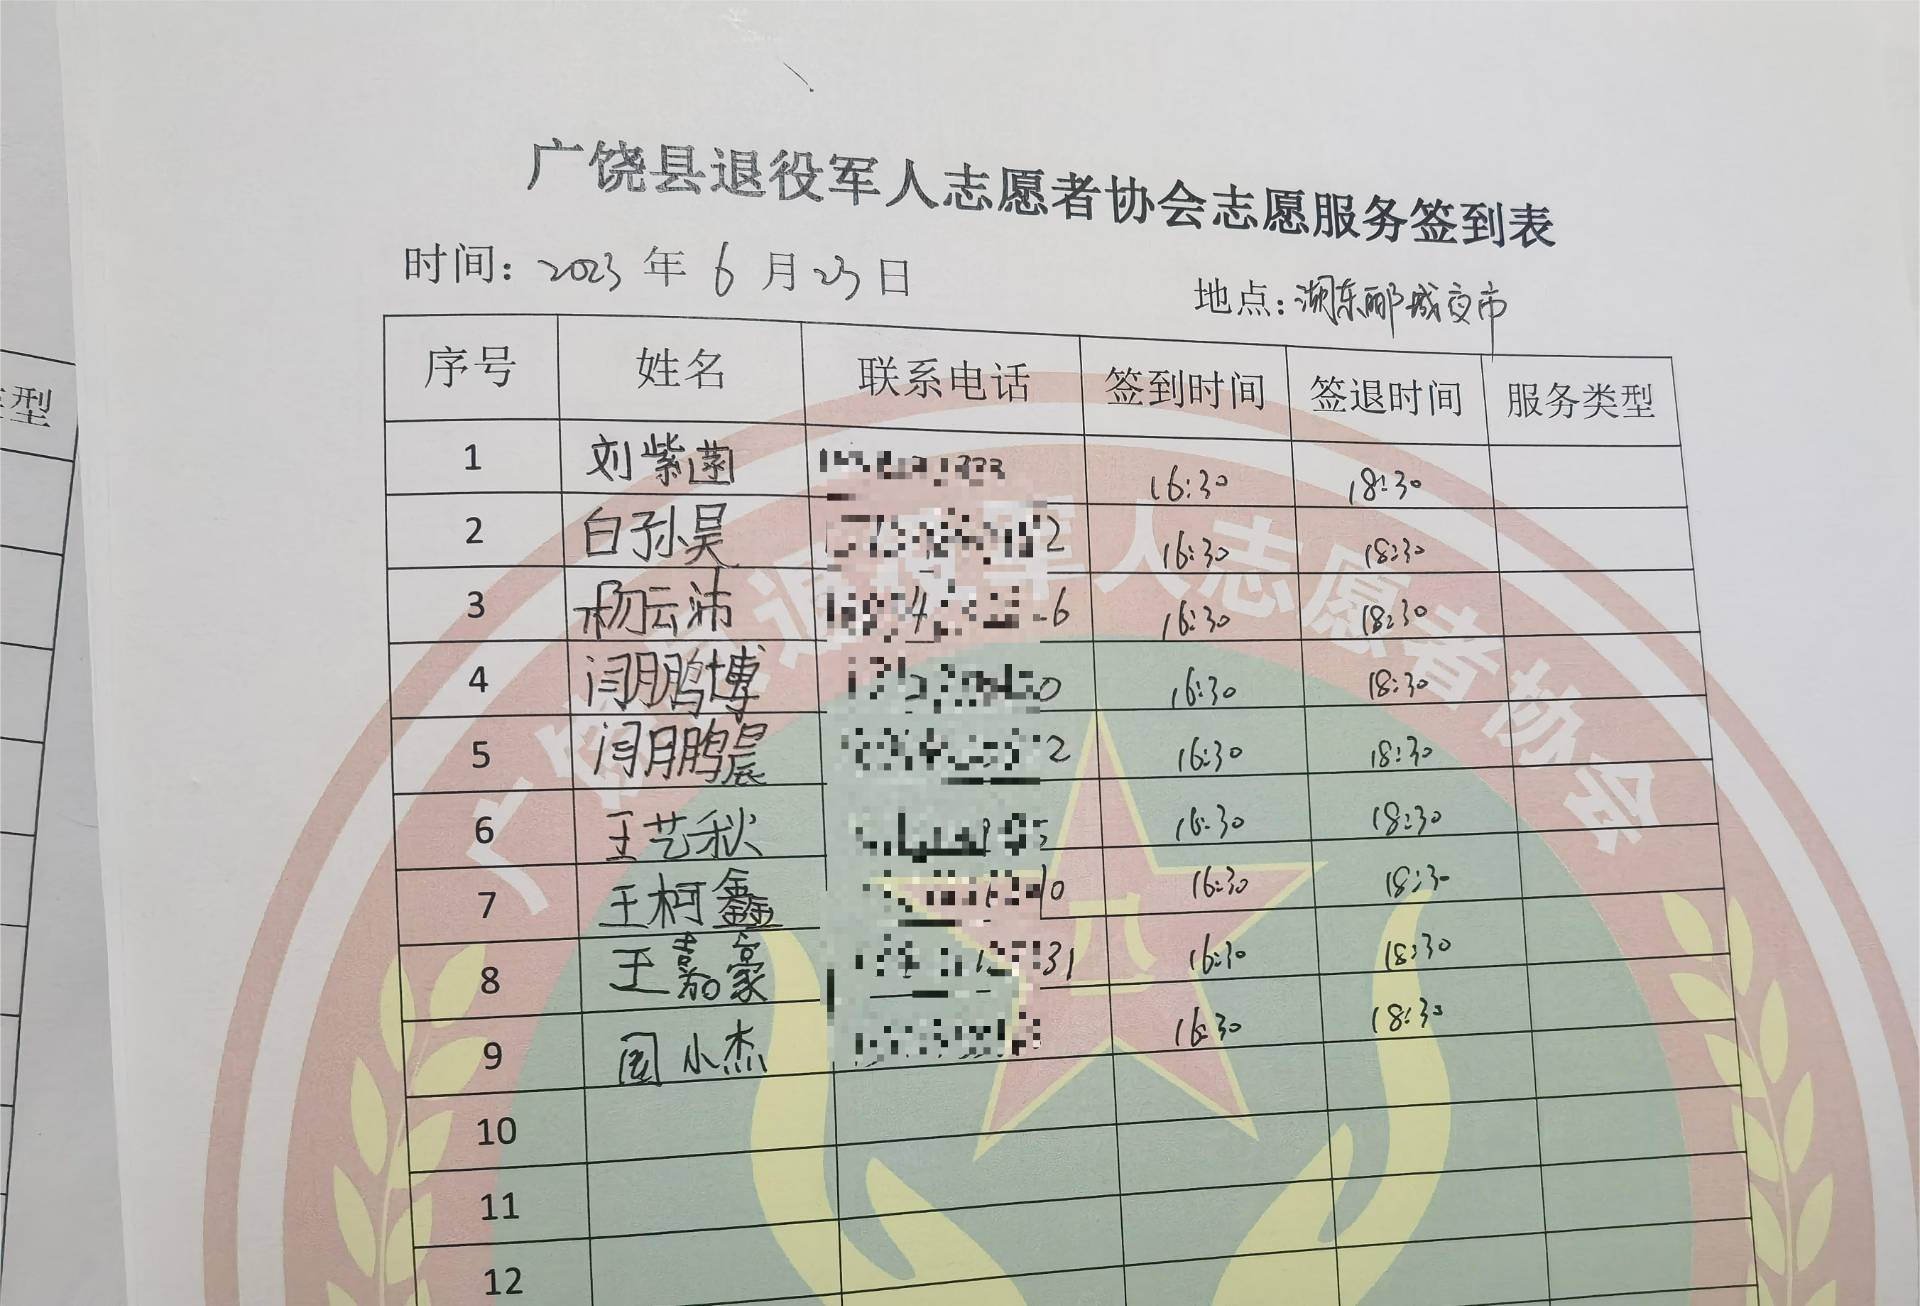 广饶县退役军人志愿者协会志愿服务签到表
时间: 2023 年 6 月 23 日
地点: 湖东郦城夜市
序号 姓名 联系电话 签到时间 签退时间 服务类型
型
1 刘紫菡 16:30 18:30
2 白孙昊 2 16:30 18:30
3 杨云沛 6 16:30 18:30
4 闫鹏博 0 16:30 18:30
5 闫鹏晨 2 16:30 18:30
6 王艺秋 5 16:30 18:30
7 王柯鑫 10 16:30 18:30
8 王嘉豪 31 16:30 18:30
9 小杰 16:30 18:30
10
11
12
广饶县退役军人志愿者协会
八一